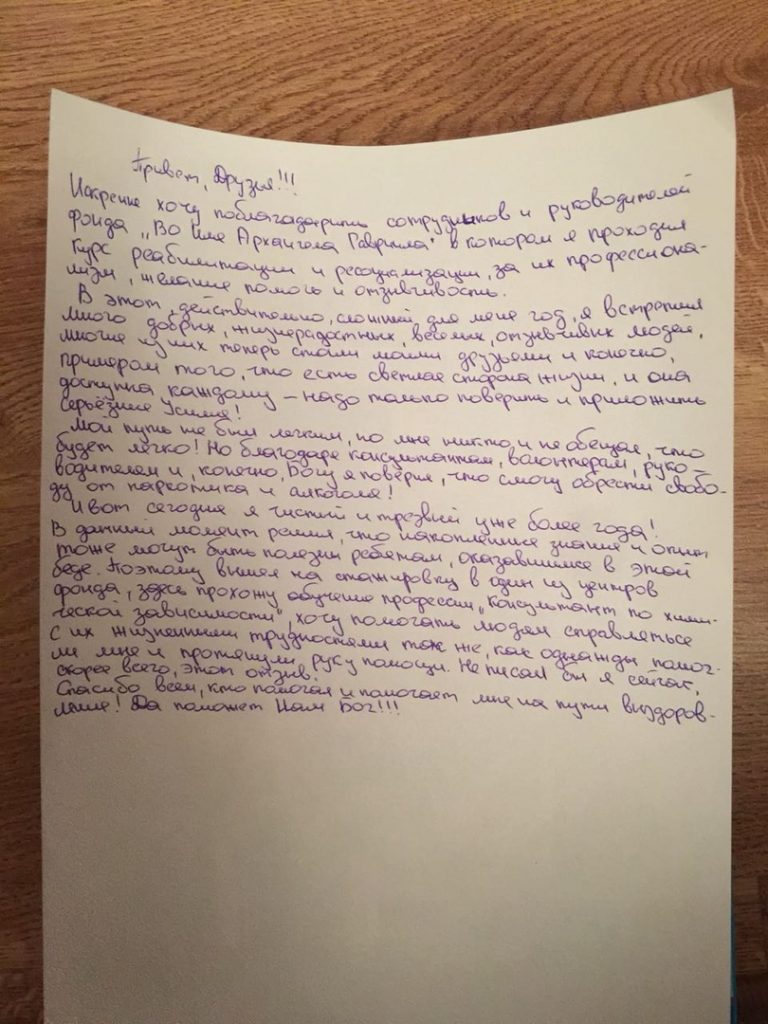 Привет, Друзья!!!
Искренне хочу поблагодарить сотрудников и руководителей
фонда „Во Имя Архангела Гавриила" в котором я проходил
курс реабилитации и ресоциализации, за их профессиона-
лизм, желание помочь и отзывчивость.
В этот, действительно, сложный для меня год, я встретил
много добрых, жизнерадостных, веселых, отзывчивых людей,
многие из них теперь стали моими друзьями и конечно,
примером того, что есть светлая сторона жизни, и она
доступна каждому – надо только поверить и приложить
серьёзные усилия!
Мой путь не был легким, но мне никто и не обещал, что
будет легко! Но благодаря консультантам, волонтерам, руко-
водителям и, конечно, Богу я поверил, что смогу обрести свобо-
ду от наркотика и алкоголя!
И вот сегодня я чистый и трезвый уже более года!
В данный момент решил, что накопленные знания и опыт
тоже могут быть полезны ребятам, оказавшимся в этой
беде. Поэтому вышел на стажировку в один из центров
фонда, здесь прохожу обучение профессии „консультант по хими-
ческой зависимости", хочу помогать людям справляться
с их жизненными трудностями так же, как однажды помог-
ли мне и протянули руку помощи. Не писал бы я сейчас,
скорее всего, этот отзыв.
Спасибо всем, кто помогал и помогает мне на пути выздоров-
ления! Да поможет Нам Бог!!!